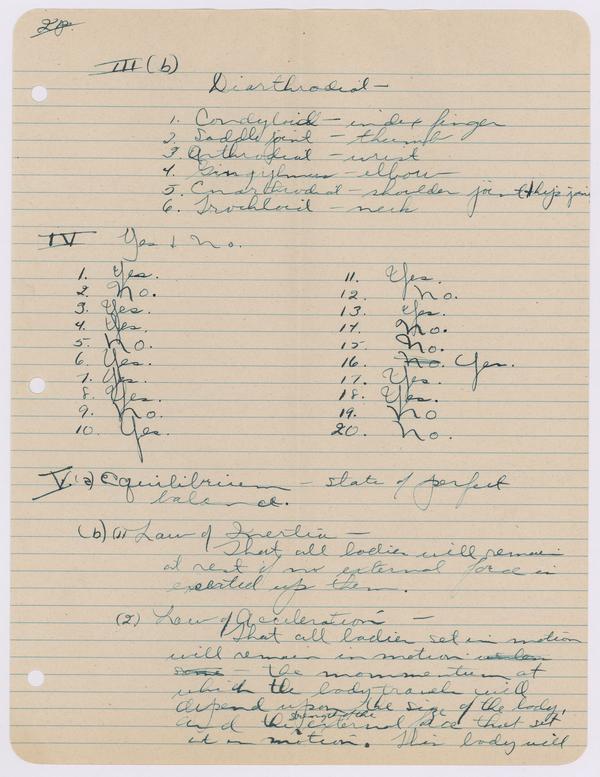 2p.
III (b)
Diarthrodial —
1. Condyloid — index finger
2. Saddle joint — thumb
3. Arthrodial — wrist
4. Gingymus — elbow
5. Enarthrodial — shoulder joint (hip join
6. Trochloid — neck
IV Yes & No.
1. Yes.
2. No.
3. Yes.
4. Yes.
5. No.
6. Yes.
7. Yes.
8. Yes.
9. No.
10. Yes.
11. Yes.
12. No.
13. Yes.
14. No.
15. No.
16. No. Yes.
17. Yes.
18. Yes.
19. No
20. No.
V. (a) Equilibrium — state of perfect
balance.
(b) (1) Law of Inertia —
That all bodies will remain
at rest if no external force is
exerted up them.
(2) Law of Acceleration —
That all bodies set in motion
will remain in motion when
same — the mommentum at
which the body travels will
depend upon the size of the body,
strength of the
and the external force that set
it in motion. This body will